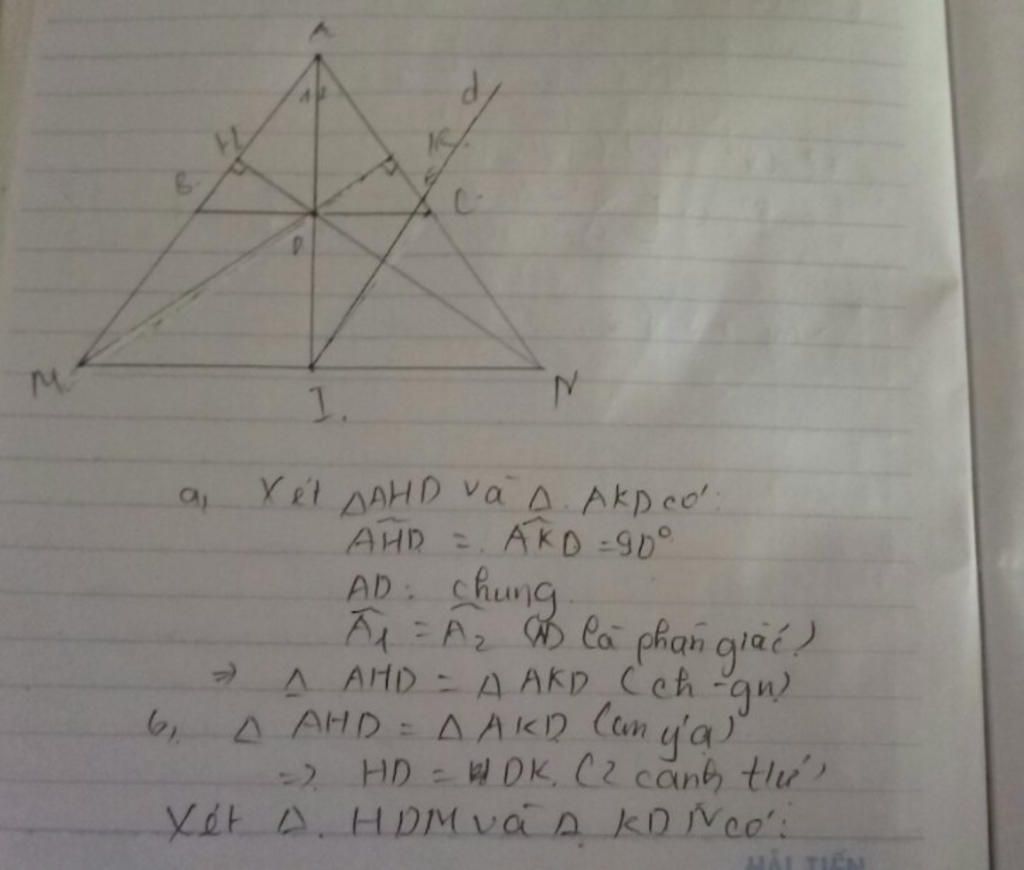 A
d
1 2
H
K
B
E
C
D
M
I.
N
a, Xét △AHD và △. AKD có:
AHD = AKD = 90°
AD: chung
A1 = A2 (AD là phân giác)
=> △ AHD = △ AKD (ch - gn)
b, △ AHD = △ AKD (cm ýa)
=> HD = DK. (2 cạnh tứ)
Xét △. HDM và △ KDN có:
HẢI TIẾN